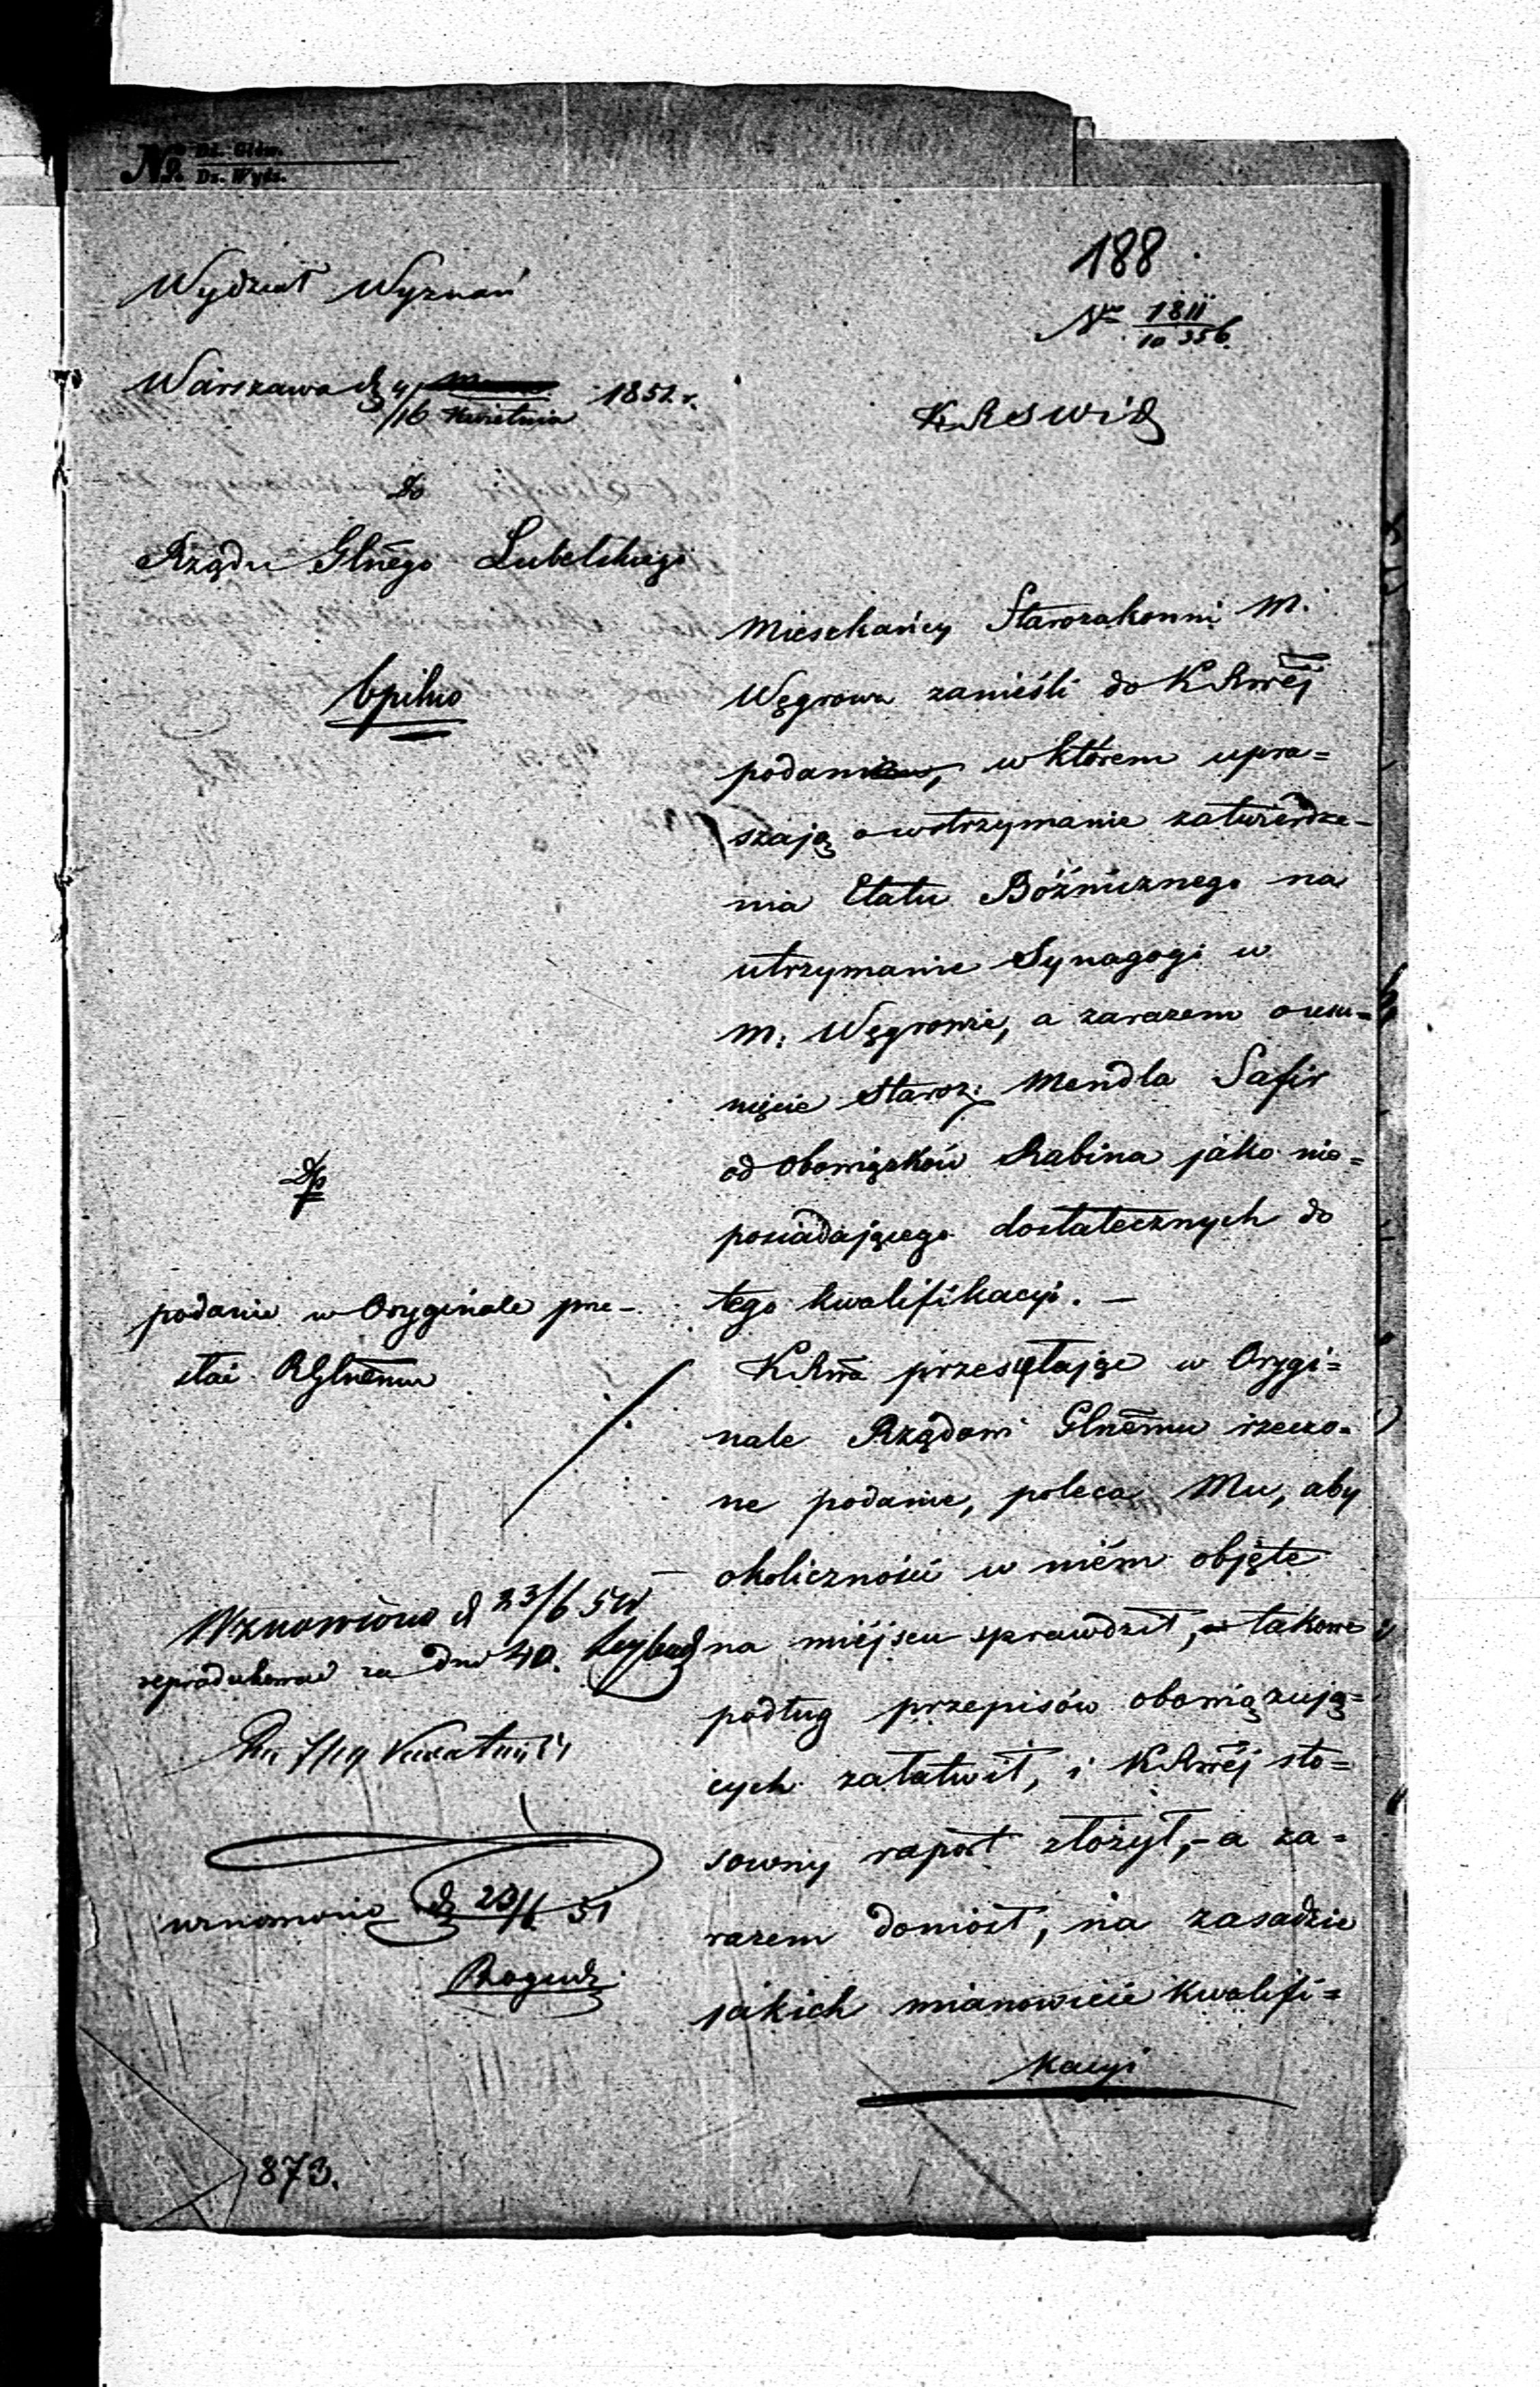 No Dz. Głów.
Dz. Wydz.
188
Wydział Wyznań
Nro 1811
10356
Warszawa d. 4/16 Kwietnia 1851 r.
KRSWiD
Do
Rządu Glnego Lubelskiego
bpilno
Mieszkańcy Starozakonni M.
Węgrowa zanieśli do KRwéj
podanie, w którem upra=
szają o wstrzymanie zatwierdze=
nia Etatu Bóżnicznego na
utrzymanie Synagogi w
M. Węgrowie, a zarazem o usu=
nięcie Staroz: Mendla Safir
od obowiązków Rabina jako nie=
posiadającego dostatecznych do
tego kwalifikacyi. —
KRwa przesyłając w Orygi=
nale Rządowi Glnemu rzeczo=
ne podanie, poleca Mu, aby
okoliczności w niém objęte
na miéjscu sprawdził, takowe
podług przepisów obowiązują=
cych załatwił, i KRwéj sto=
sowny raport złożył, - a za=
razem doniósł, na zasadzie
jakich mianowicie kwalifi=
kacyi
podanie w Oryginale prze-
słać RGlnemu
Wznowiono d 23/6 51
reprodukować za dni 40.
7/19
wznowiono d. 20/6 51
873.